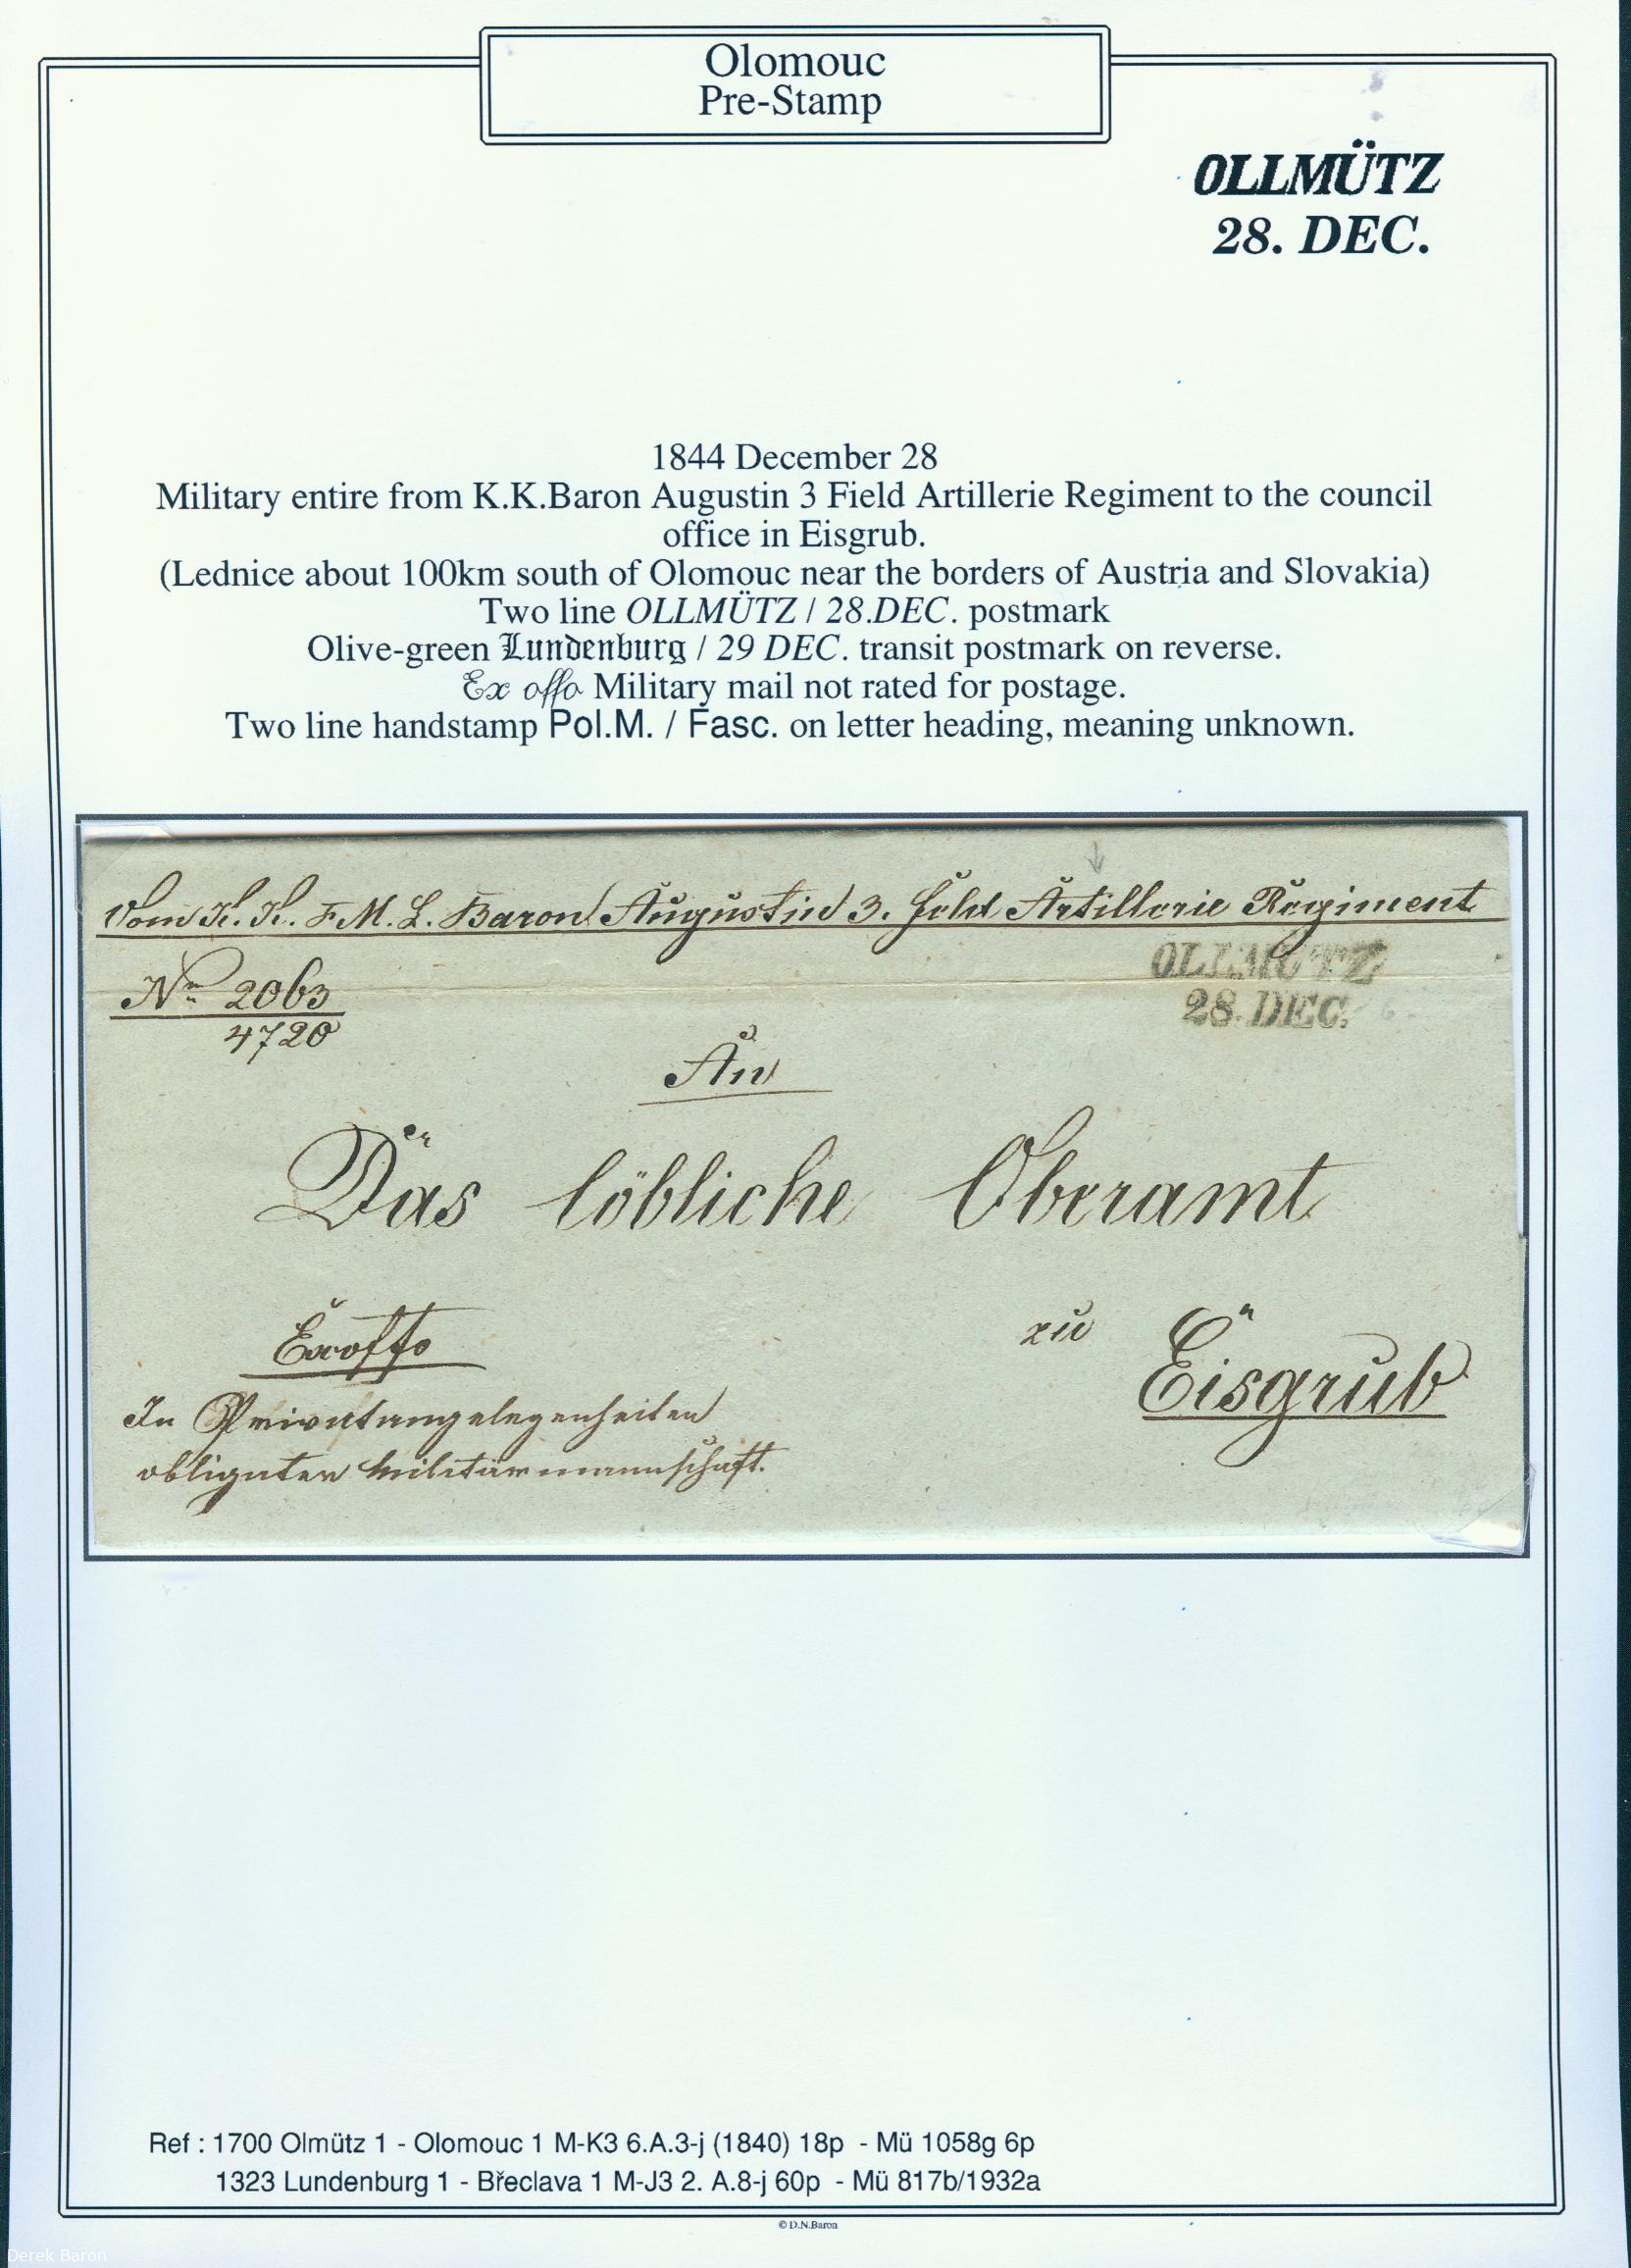 Olomouc
Pre-Stamp
OLLMÜTZ
28. DEC.
1844 December 28
Military entire from K.K.Baron Augustin 3 Field Artillerie Regiment to the council
office in Eisgrub.
(Lednice about 100km south of Olomouc near the borders of Austria and Slovakia)
Two line OLLMÜTZ / 28.DEC. postmark
Olive-green Lundenburg / 29 DEC. transit postmark on reverse.
Ex offo Military mail not rated for postage.
Two line handstamp Pol.M. / Fasc. on letter heading, meaning unknown.
Vom K. K. F.M.L. Baron Augustin 3. Feld Artillerie Regiment
OLLMÜTZ
28. DEC.
No 2063
4720
An
Das löbliche Oberamt
Exoffo
zu Eisgrub
In Privatangelegenheiten
obligater Militärmannschaft.
Ref : 1700 Olmütz 1 - Olomouc 1 M-K3 6.A.3-j (1840) 18p - Mü 1058g 6p
1323 Lundenburg 1 - Břeclava 1 M-J3 2. A.8-j 60p - Mü 817b/1932a
© D.N.Baron
Derek Baron